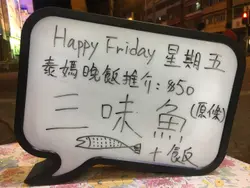 Happy Friday 星期五
泰媽晚飯推介：$50
三味魚(原條)
+飯